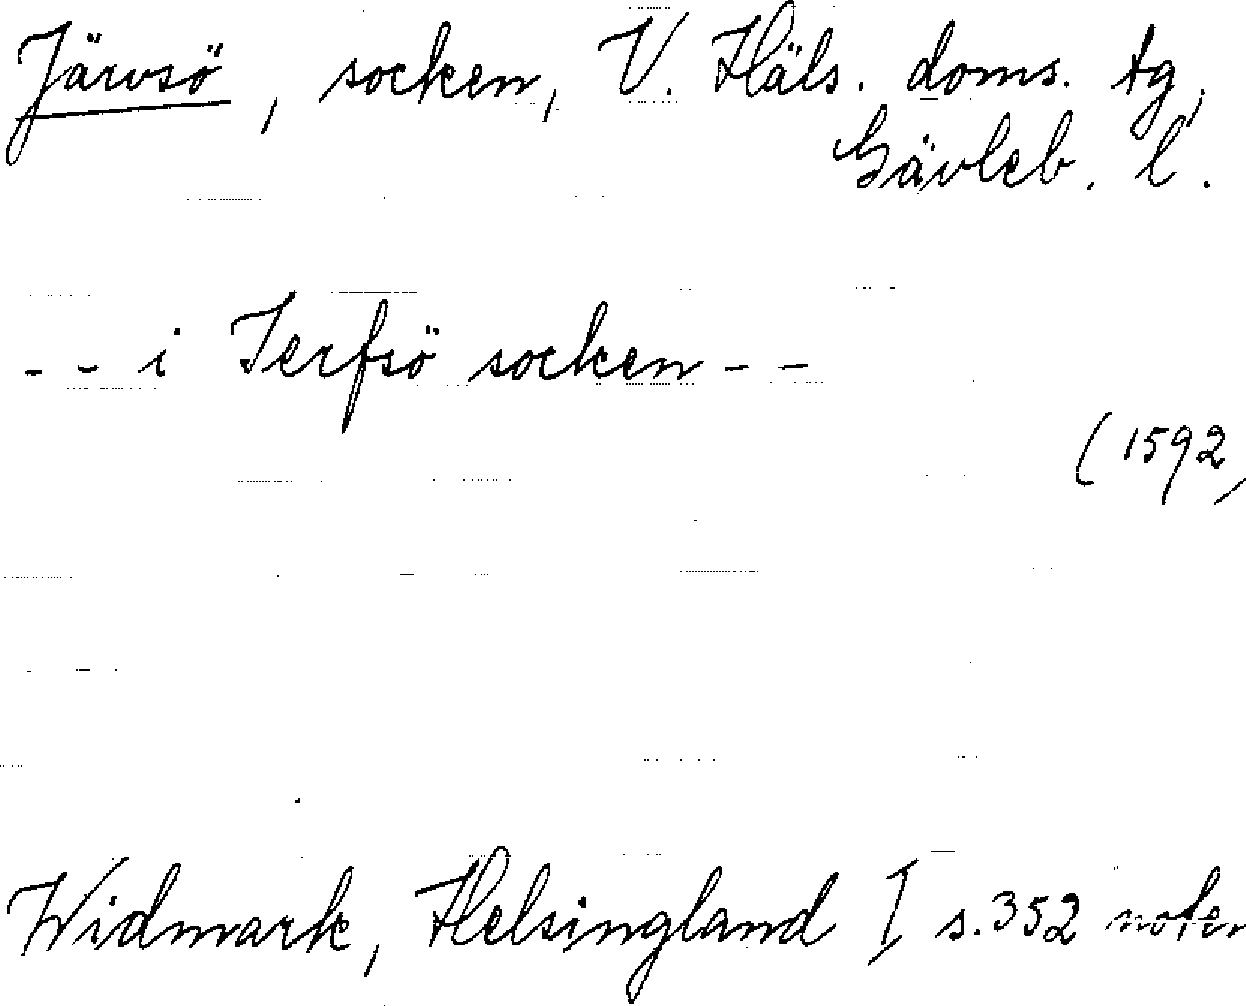 Järvsö, socken, V. Häls. doms. tg,
Gävleb. l.
- - i Jerfsö socken - -
(1592,
Widmark, Helsingland I s. 352 noten